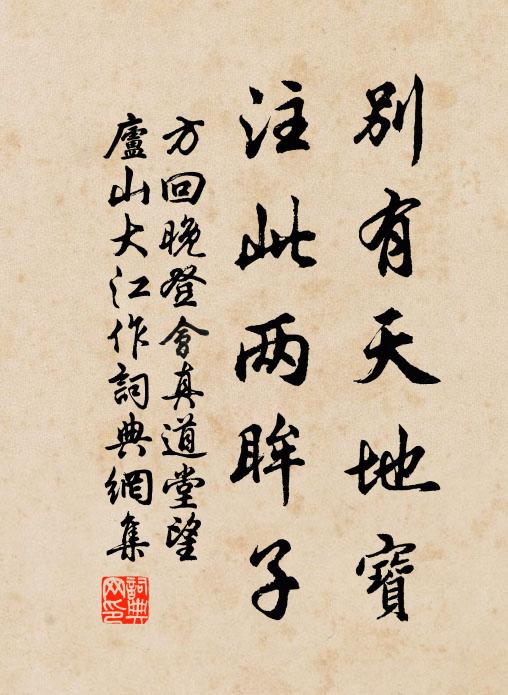 别有天地寶
注此两眸子
方回晚登會真道堂望
廬山大江作詞典網集
詞典
网印